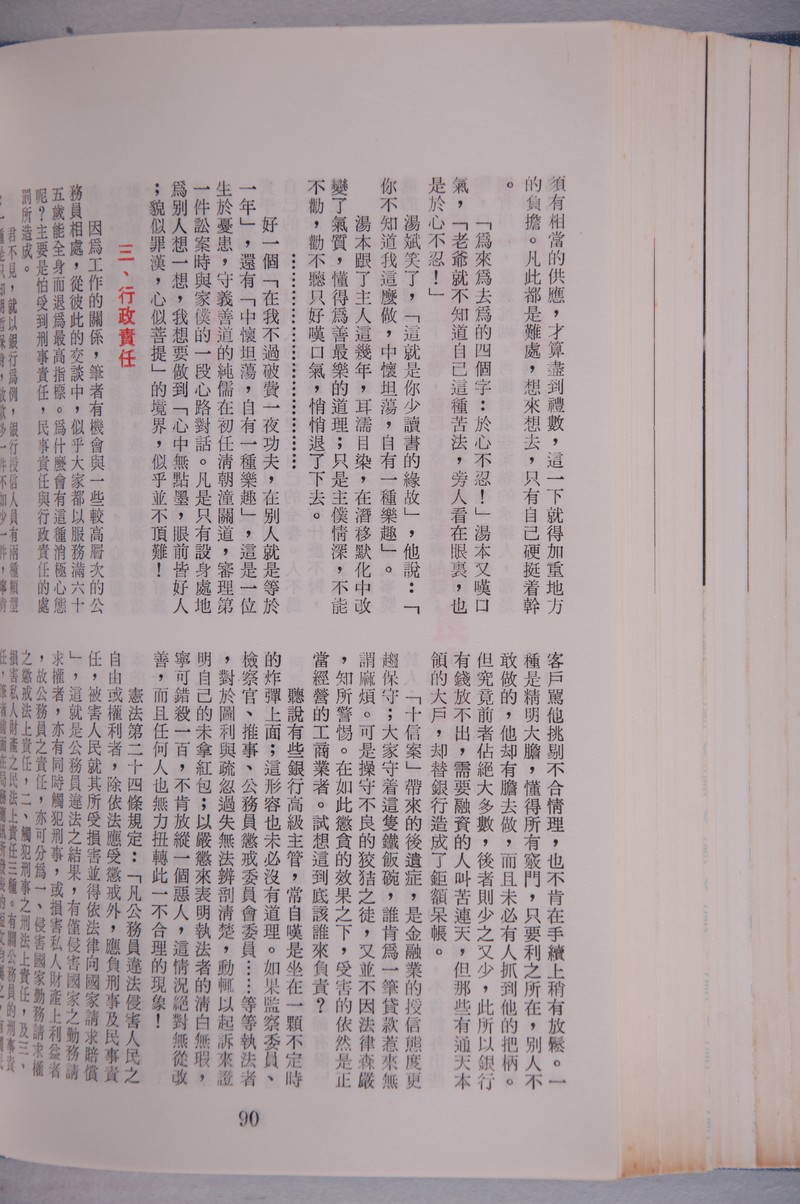 須有相當的供應，才算盡到禮數，這一下就得加重地方
的負擔。凡此都是難處，想來想去，只有自己硬挺着幹
。
「爲來爲去爲的四個字：於心不忍！」湯本又嘆口
氣，「老爺就不知道自己這種苦法，旁人看在眼裏，也
是於心不忍！」
湯斌笑了，「這就是你少讀書的緣故」，他說：「
你不知道我這麼做，中懷坦蕩，自有一種樂趣」。
湯本跟了主人這幾年，耳濡目染，在潛移默化中改
變了氣質，懂得爲善最樂的道理；只是主僕情深，不能
不勸，勸不聽只好嘆口氣，悄悄退了下去。
…………………………
好一個「在我不過破費一夜功夫，在別人就是等於
一年」，還有「中懷坦蕩，自有一種樂趣」，這是一位
生於憂患，守義善道的純儒在初任淸朝潼關道，審理第
一件訟案時與家僕的一段心路對話。凡是只有設身處地
爲別人想一想，我想要做到「心中無點墨，眼前皆好人
；貌似罪漢，心似菩提」的境界，似乎並不頂難！
三、行政責任
因爲工作的關係，筆者有機會與一些較高層次的公
務員相處，從彼此的交談中，似乎大家都以服務滿六十
五歲能全身而退爲最高指標。爲什麼會有這種消極心態
呢？主要是怕受到刑事責任，民事責任與行政責任的處
罰所造成。
君不見，就以銀行爲例，銀行授信人員有兩種類型
客戶罵他挑剔不合情理，也不肯在手續上稍有放鬆。一
種是精明大膽，懂得所有竅門，只要利之所在，別人不
敢做的，他却有膽去做，而且未必有人抓到他的把柄。
但究竟前者佔絕大多數，後者則少之又少，此所以銀行
有錢放不出，需要融資的人叫苦連天，但那些有通天本
領的大戶，却替銀行造成了鉅額呆帳。
「十信案」帶來的後遺症，是金融業的授信態度更
趨保守；大家守着這隻鐵飯碗，誰肯爲一筆貸款惹來無
謂麻煩。可是操守不良的狡猾之徒，又並不因法律森嚴
，知所警惕。在如此懲貪的效果之下，受害的依然是正
當經營的工商業者。試想這到底該誰來負責？
聽說有些銀行高級主管，常自嘆是坐在一顆不定時
的炸彈上面；這形容也未必沒有道理。如果監察委員、
檢察官、推事、公務員懲戒委員會委員……等等執法者
，對於圖利與疏忽過失無法辨剖淸楚，動輒以起訴來證
明自己的未拿紅包；以嚴懲來表明執法者的淸白無瑕，
寧可錯殺一百，不肯放縱一個惡人，這情況絕對無從改
善，而且任何人也無力扭轉此一不合理的現象！
憲法第二十四條規定：「凡公務員違法侵害人民之
自由或權利者，除依法應受懲戒外，應負刑事及民事責
任，被害人民就其所受損害並得依法律向國家請求賠償
」，這就是公務員違法之結果，有僅侵害國家之勤務請
求權者，亦有同時觸犯刑事，或損害私人財產上利益者
，故公務員之責任，亦可分爲一、侵害國家勤務請求權
之懲戒法上責任，二、觸犯刑事之刑法上責任，及三、
損害私人財產之民法上責任三種。有關公務員的刑事責
90